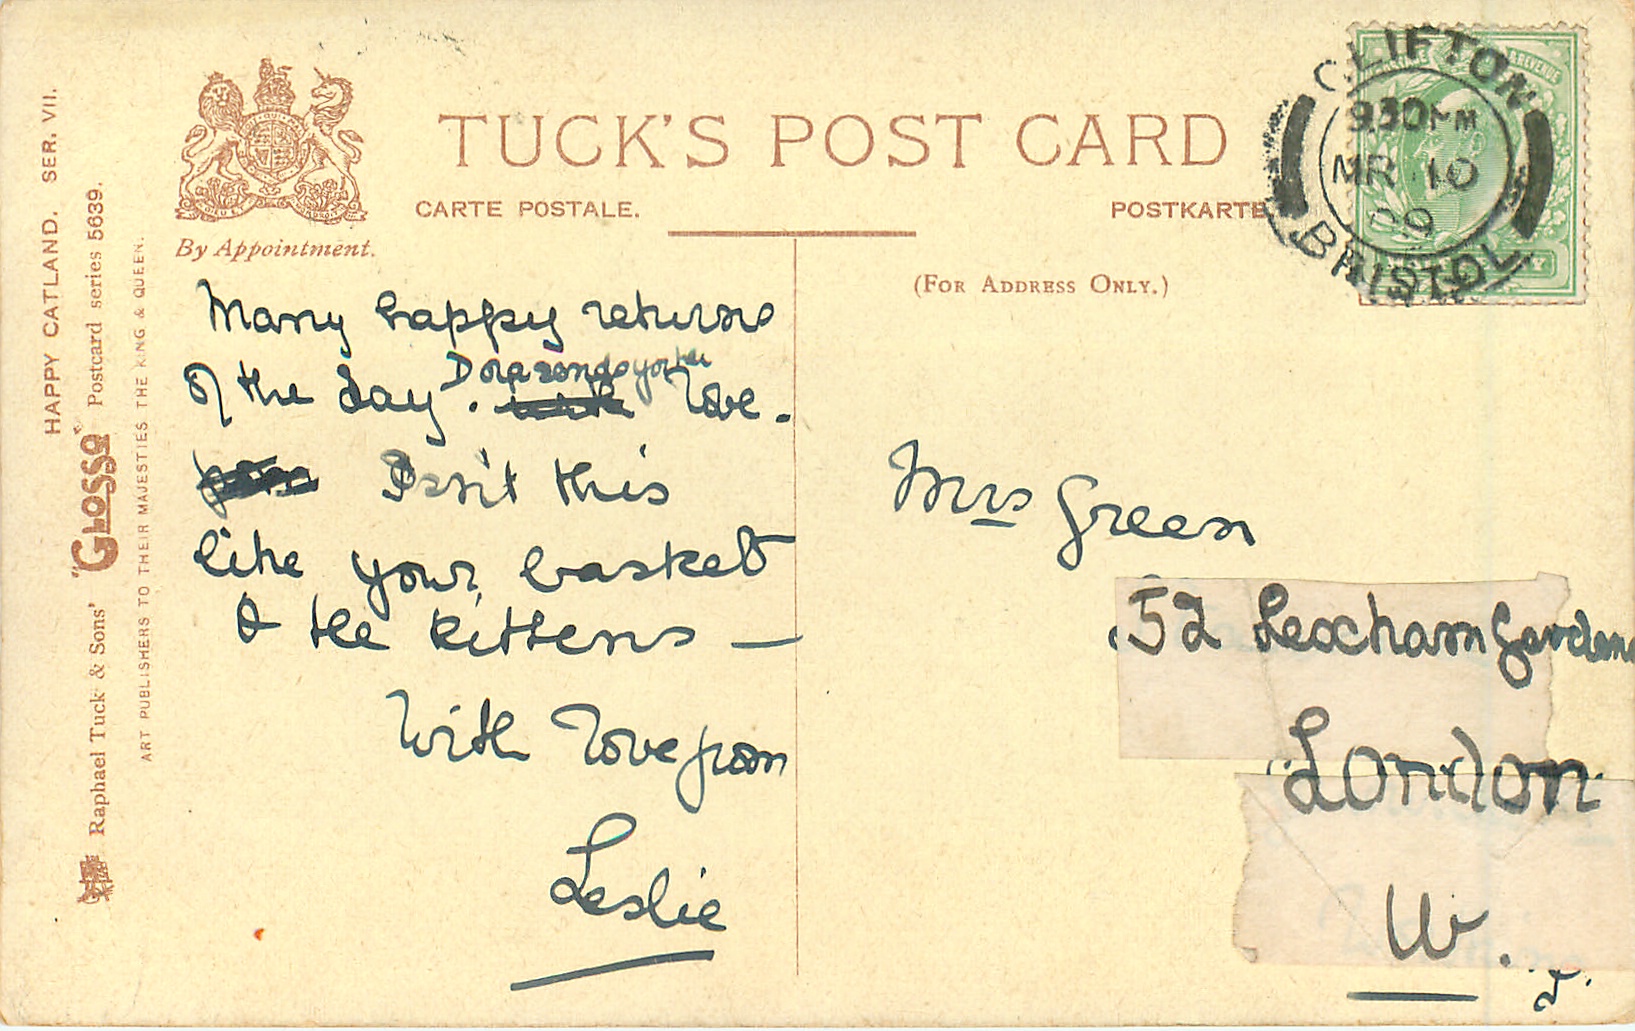 HAPPY CATLAND. SER. VII.
Raphael Tuck & Sons' "GLOSSO" Postcard series 5639.
ART PUBLISHERS TO THEIR MAJESTIES THE KING & QUEEN.
By Appointment.
TUCK'S POST CARD
CARTE POSTALE. POSTKARTE
(FOR ADDRESS ONLY.)
CLIFTON
9.30 PM
MR 10
09
BRISTOL
REVENUE
Many happy returns
Dora sends you her
of the day. love.
Isn't this
like your basket
& the kittens —
With love from
Leslie
Mrs Green
52 Lexham Gardens
London
W.